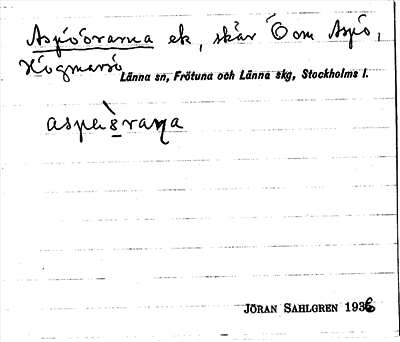 Aspöörarna ek, skär Ö om Aspö,
Högmarsö
Länna sn, Frötuna och Länna skg, Stockholms l.
JÖRAN SAHLGREN 1936